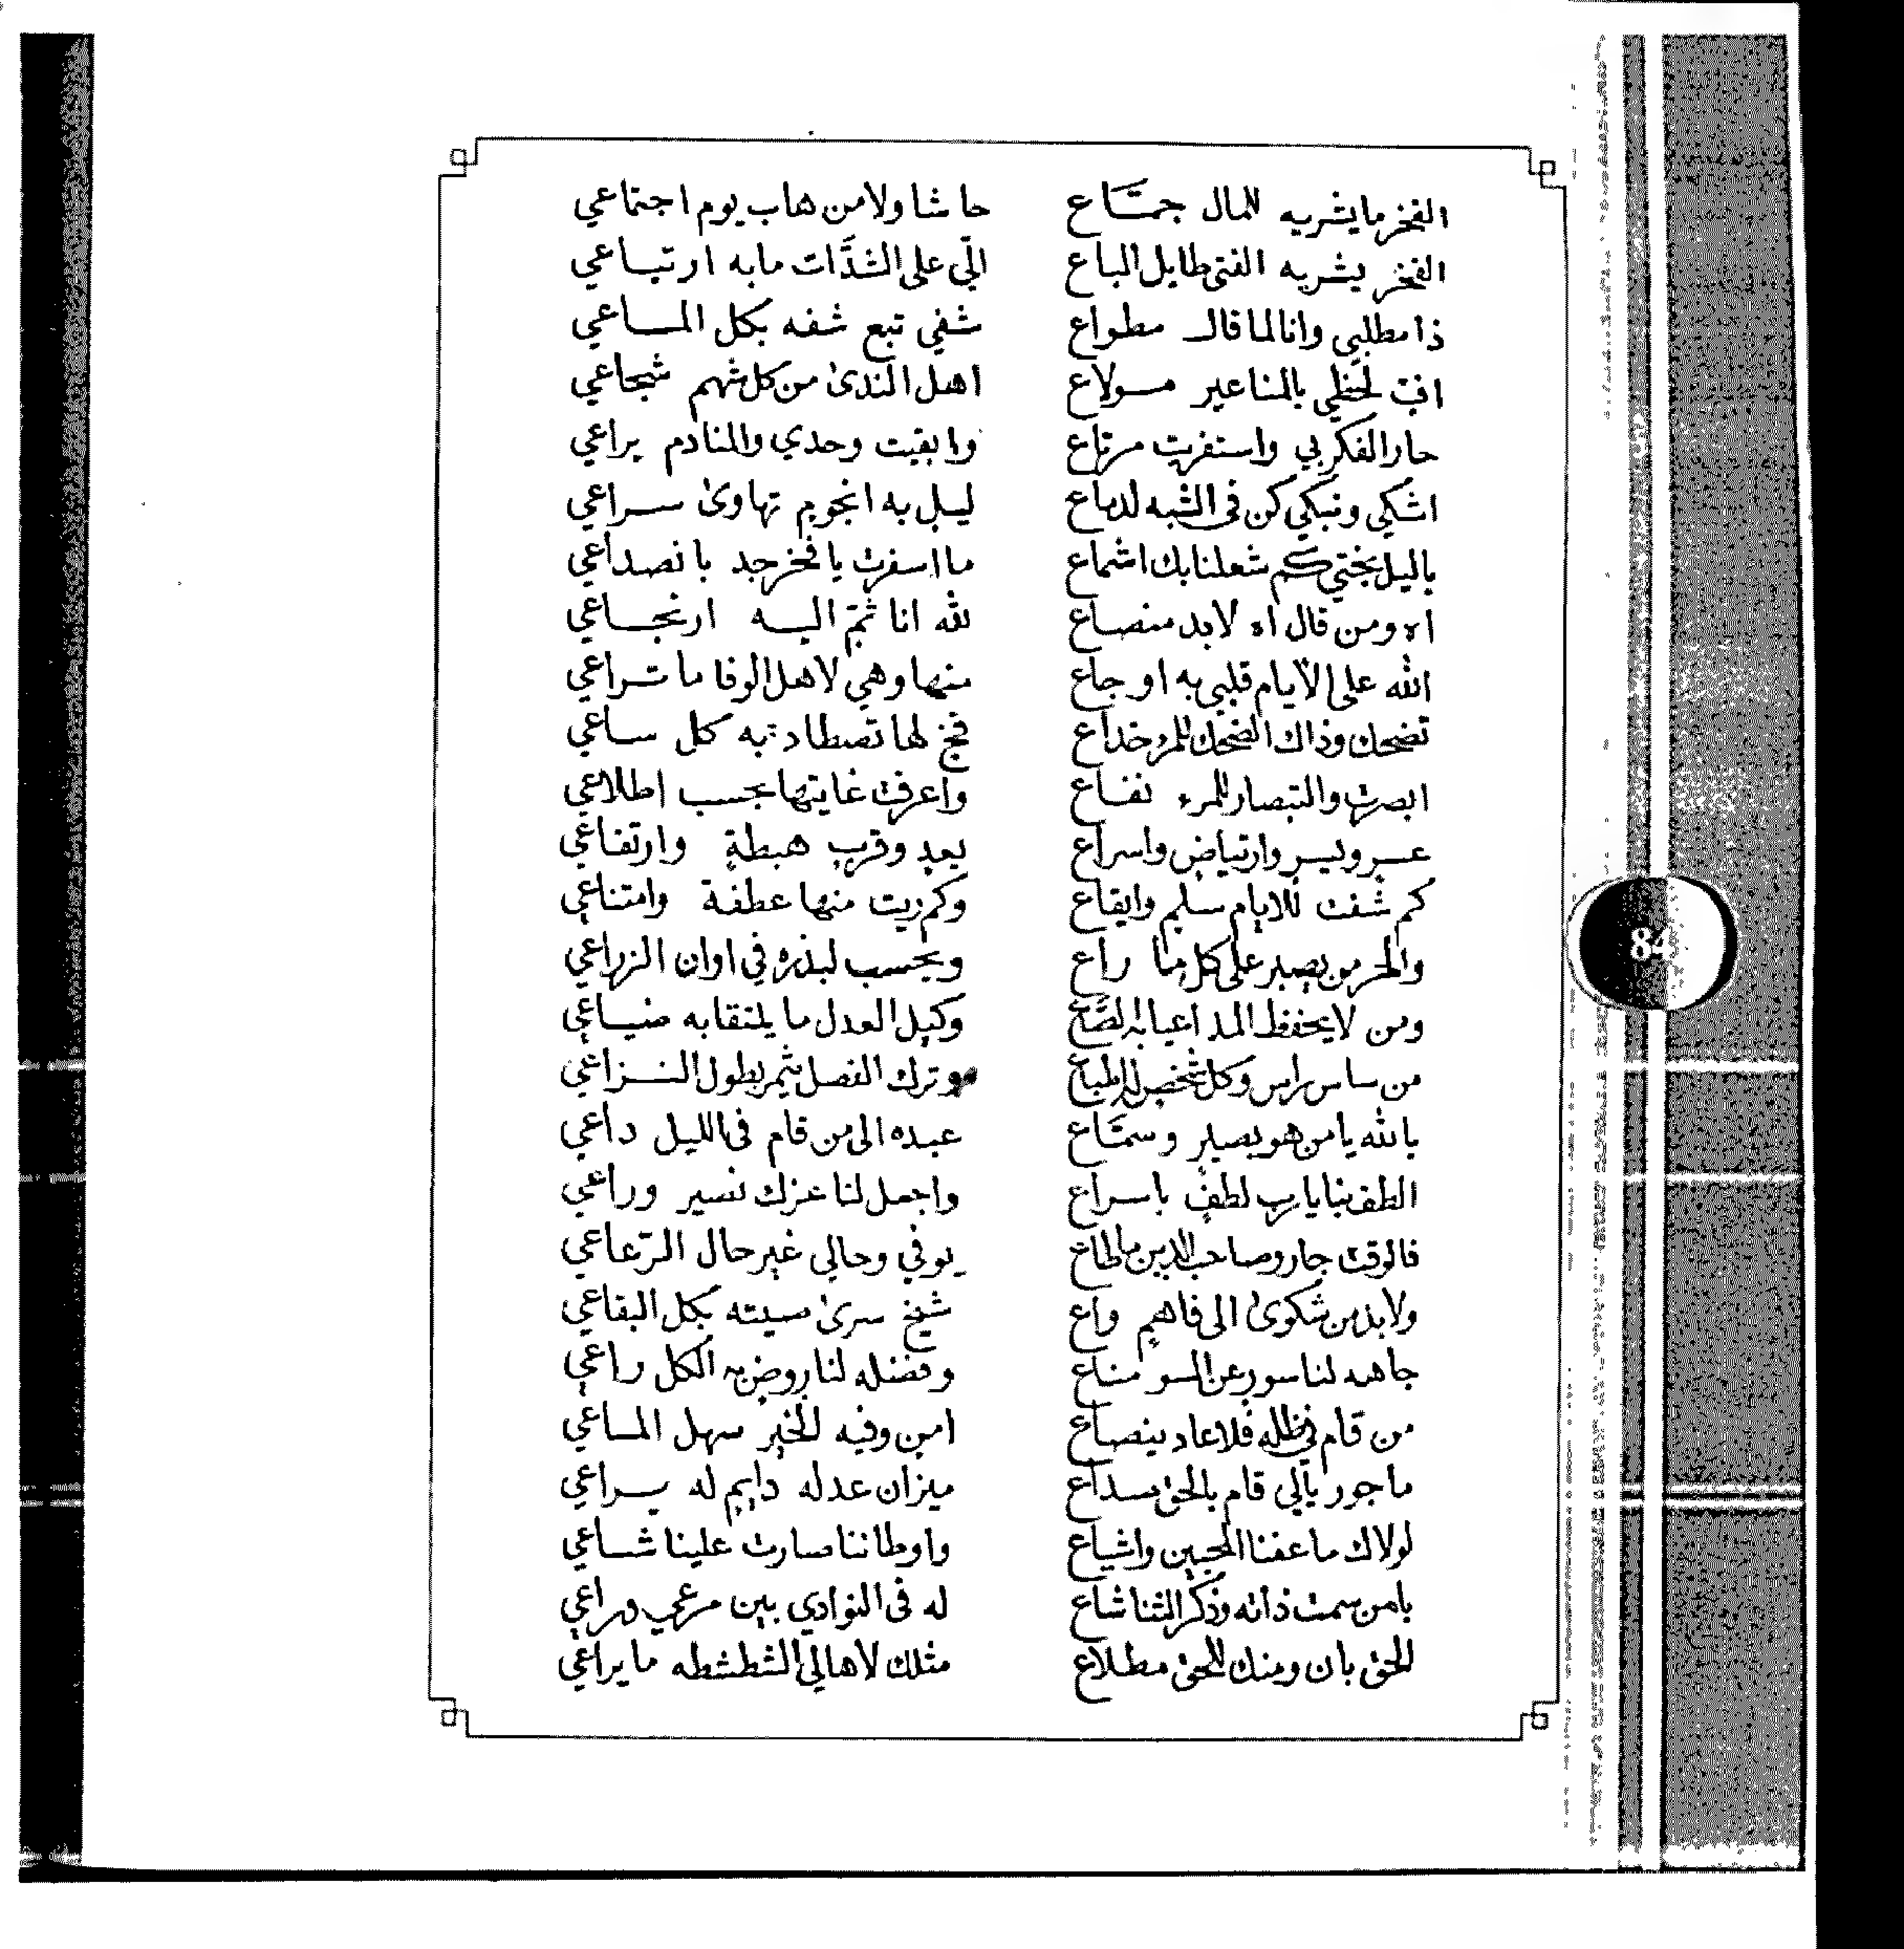 الفخر ما يشريه للمال جمّاع حاشا ولا من هاب يوم اجتماعي
الفخر يشريه الفتى طايل الباع الّي على الشدَّات ما به ارتباعي
ذا مطلبي وانا لما قال مطواع شفي تبع شفه بكل المساعي
لحظي بالمناعير مولاع اهل الندى من كل شهم شجاعي
حار الفكر بي واستفزيت مرتاع وابقيت وحدي والمنادم يراعي
اشكي ونبكي كن في الشبه لدباع ليل به انجوم تهاوى سراعي
ياليل بختي كم شعلنا بك اشماع ما اسفرت يا فخر جد بانصداعي
اه ومن قال اه لابد منصاع لله انا ثمّ اليه ارتجاعي
الله على الايام قلبي به اوجاع منها وهي لاهل الوفا ما تراعي
تضحك وذاك الضحك للمرء خداع فخ لها تصطاد به كل ساعي
ابصرت والتبصار للمرء نفاع واعرفت غايتها بحسب اطلاعي
عسر ويسر وارتياض واسراع بعد وقرب هبطة وارتفاعي
كم شفت للايام سلم وايقاع وكم ريت منها عطفة وامتناعي
والحر من يصبر على كل ما راع ويحسب لبذره في اوان الزراعي
ومن لا يحفظ المد اعيا به الصّاع وكيل العدل ما يلتقا به ضياعي
من ساس راس وكل شخص له اطباع وترك الفصل يثمر بطول النزاعي
بالله يا من هو بصير وسمّاع عبده الى من قام في الليل داعي
الطف بنا يا رب لطف باسراع واجعل لنا عزك نسير وراعي
فالوقت جار وصاحب الدين ماطاع يوفي وحالي غير حال الرّعاعي
ولابد من شكوى الى فاهم واع شيخ سرى صيته بكل البقاعي
جاهه لنا سور عن السو مناع وفضله لنا روض به الكل راعي
من قام في ظله فلا عاد ينصاع امن وفيه للخير سهل المساعي
ما جور يالي قام بالحق سداع ميزان عدله دايم له يراعي
لولاك ما عفنا المحبين واشياع واوطاننا صارت علينا شساعي
يامن سمت ذاته وذكر الثنا شاع له في النوادي بين مرعي وراعي
الحق بان ومنك للحق مطلاع مثلك لاهالي الشطشطه ما يراعي
84